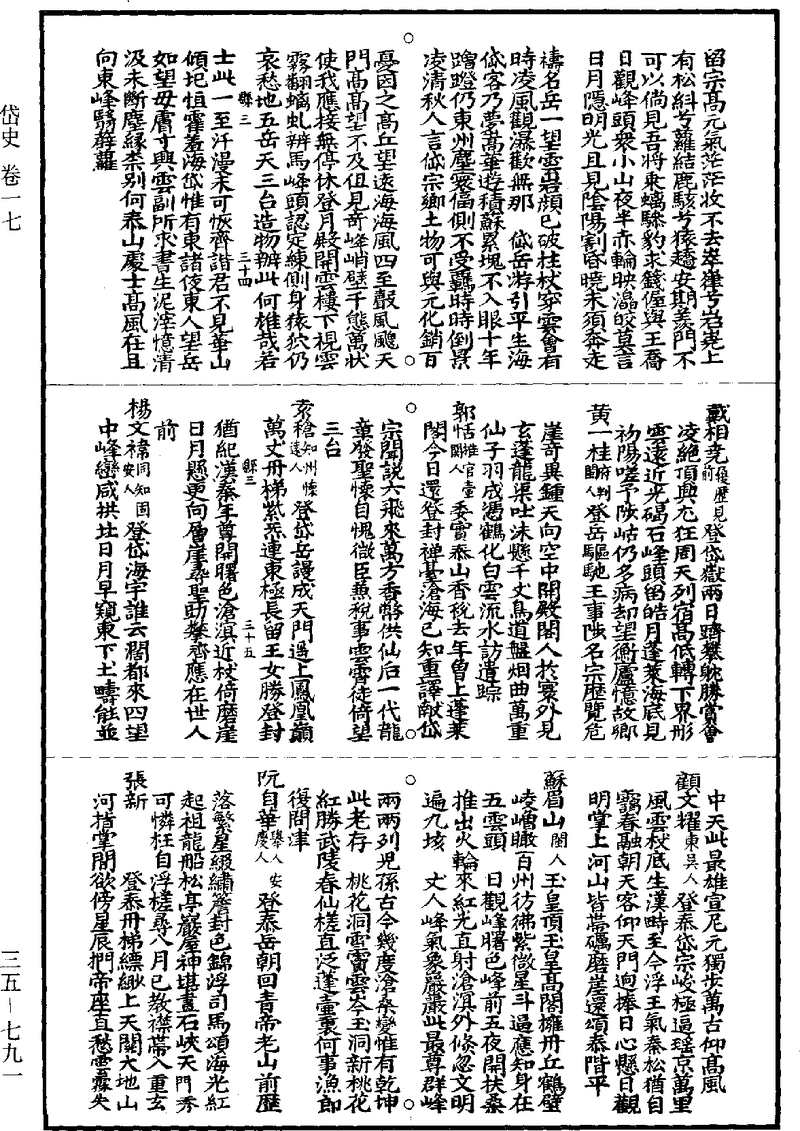 岱史 卷一七
留宗高元氣茫茫妝不去崒嵂兮岩嶤上
有松糾兮蘿結鹿駭兮猿趫安期羨門不
可以倘見吾將乘螭驂豹求籛偓與王喬
日觀峰頭衆小山夜半赤輪映瀛皎莫言
日月隱明光且見陰陽割昏曉未須奔走
禱名岳一望雲岩顏已破拄杖穿雲會有
時凌風觀瀑歡無那 岱岳游引平生海
岱客乃夢嵩華遊積蘇累塊不入眼十年
蹭蹬仍東州塵寰偪側不受羈時時倒景
凌清秋人言岱宗鄉土物可與元化銷百
憂因之高丘望遠海海風四至鼓風飈天
門高高望不及但見奇峰峭壁千態萬狀
使我應接無停休登月殿開雲樓下視雲
霧翻螭虬辨馬峰頭認定練側身猿狖仍
哀愁地五岳天三台造物辦此何惟哉若
縣三 三十四
士此一至汗漫未可恢齊諧君不見華山
傾圮恒霍羞海岱惟有東諸侯東人望岳
如望毋膚寸興雲副所求書生泥滓憶清
汲未斷塵緣柰別何泰山處士高風在且
向東峰翳薜蘿
戴相堯前後歷見登岱嶽兩日躋攀眺勝賞會
凌絶頂興尤狂周天列宿高低轉下界形
雲遠近光碣石峰頭留皓月蓬萊海底見
初陽嗟予陟岵仍多病却望衡廬憶故鄉
黄一桂府判閩人登岳驅馳王事陟名宗歷覽危
崖奇異鍾天向空中開殿閣人於寰外見
玄蓬龍渠吐沫懸千丈鳥道盤烟曲萬重
仙子羽成憑鶴化白雲流水訪遺踪
郭恬推官壺關人委實泰山香稅去年曾上蓬萊
閣今日還登封禪臺滄海已知重譯敵岱
宗聞説六飛來萬方香幣供仙后一代龍
章發聖懷自愧微臣蒹稅事雲霄徒倚望
三台
索稽知州懷遠人登岱岳謾成天門邊上鳳凰巔
萬丈丹梯紫炁連東極長留王女勝登封
縣三 三十五
猶紀漢秦年尊開曙色滄溟近杖倚磨崖
日月懸更向層崖尋聖助攀齊應在世人
前
楊文褘同知固安人登岱海宇誰云濶都來四望
中峰巒咸拱址日月早窺東下土疇能並
中天此最雄宣尼元獨步萬古仰高風
顧文耀東吳人登泰岱宗峻極逼瑤京萬里
風雲杖底生漢時至今浮王氣秦松猶自
靄春融朝天客仰天門迥捧日心懸日觀
明掌上河山皆帶礪磨崖還頌泰階平
蘇眉山閣人玉皇頂玉皇高閣擁丹丘鶴壁
崚嶒瞰百州彷彿紫微星斗逼應知身在
五雲頭 日觀峰曙色峰前五夜開扶桑
推出火輪來紅光直射滄溟外倏忽文明
遍九垓 丈人峰氣象嚴嚴此最尊群峰
兩兩列兒孫古今幾度滄桑變惟有乾坤
此老存 桃花洞霄霄雲岑玉洞新桃花
紅勝武陵春仙槎直泛蓬壷裏何事漁郎
復問津
阮自華舉人安慶人登泰岳朝回青帝老山前歷
落繁星綴繡簪封色錦浮司馬頌海光紅
起祖龍船松亭巖壑神堪畫石峽天門秀
可憐枉自浮槎尋八月已教襟帶入重玄
張新 登泰丹梯縹緲上天關大地山
河指掌間欲傍星辰捫帝座直愁雲霧失
三五－七九一